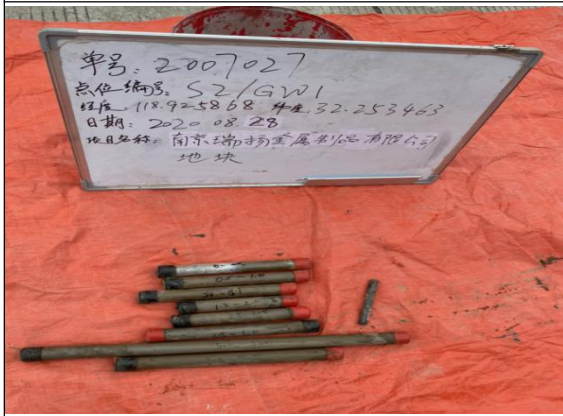 单号: 2007027
点位编号: S2/GW1
经度: 118.925868 纬度: 32.253463
日期: 2020.08.28
项目名称: 南京瑞扬金属制品有限公司
地块